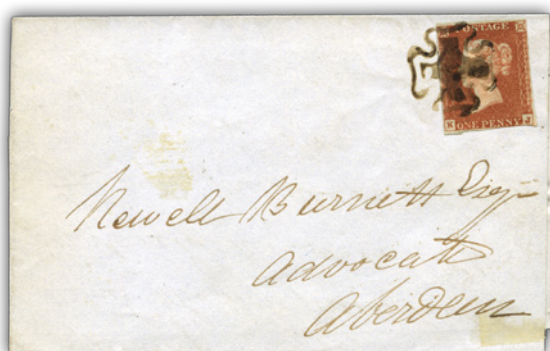 POSTAGE
K J
ONE PENNY
Newell Burnett Esqr
Advocate
Aberdeen